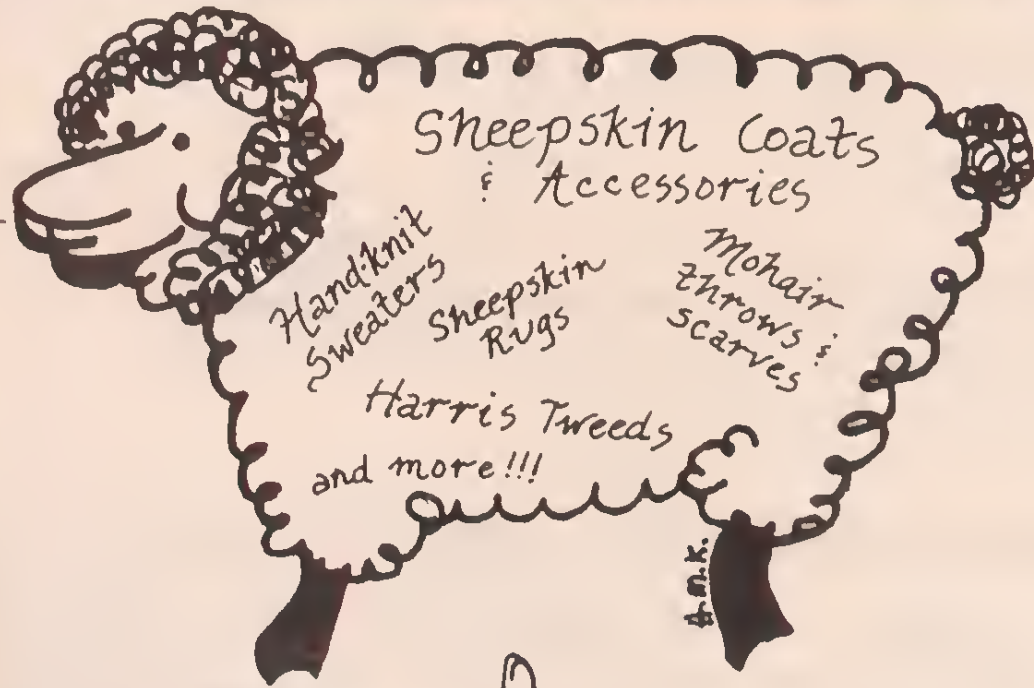 Sheepskin Coats
& Accessories
Hand-knit
Sweaters
Sheepskin
Rugs
Mohair
throws &
scarves
Harris Tweeds
and more!!!